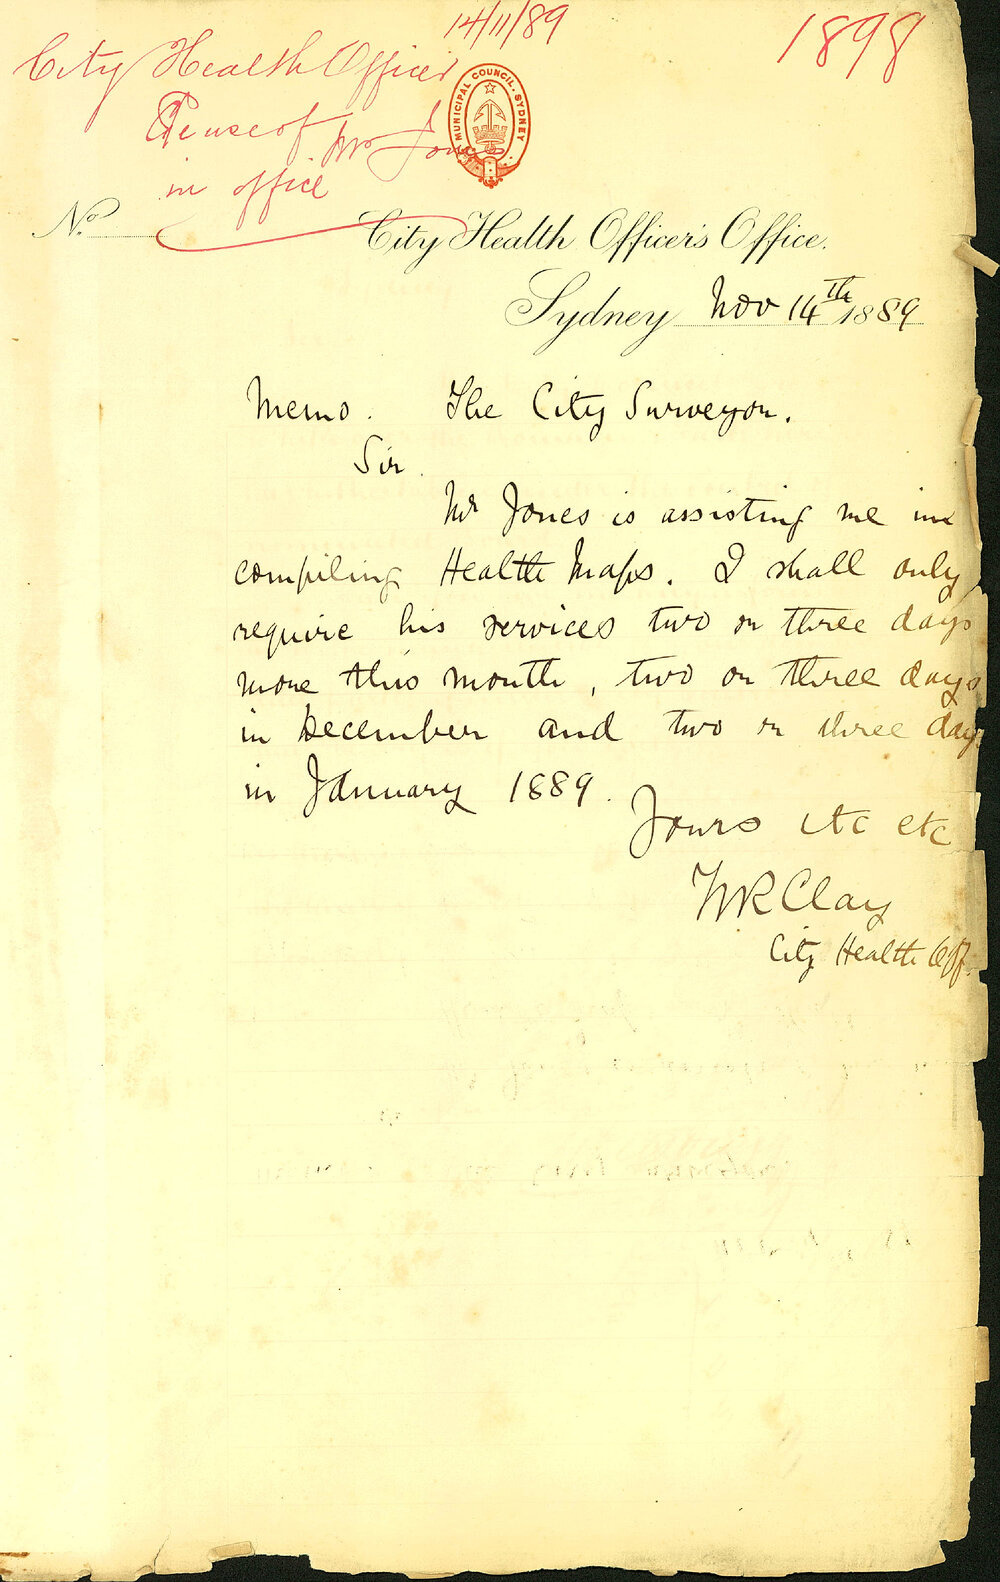 14/11/89
1898
City Health Officer
Re use of Mr Jones
in office
MUNICIPAL COUNCIL. SYDNEY
No.
City Health Officer's Office.
Sydney Nov 14th 1889
Memo. The City Surveyor.
Sir.
Mr Jones is assisting me in
compiling Health Maps. I shall only
require his services two or three days
more this month, two or three days
in December and two or three days
in January 1889.
Yours etc etc
WRClay
City Health Off.